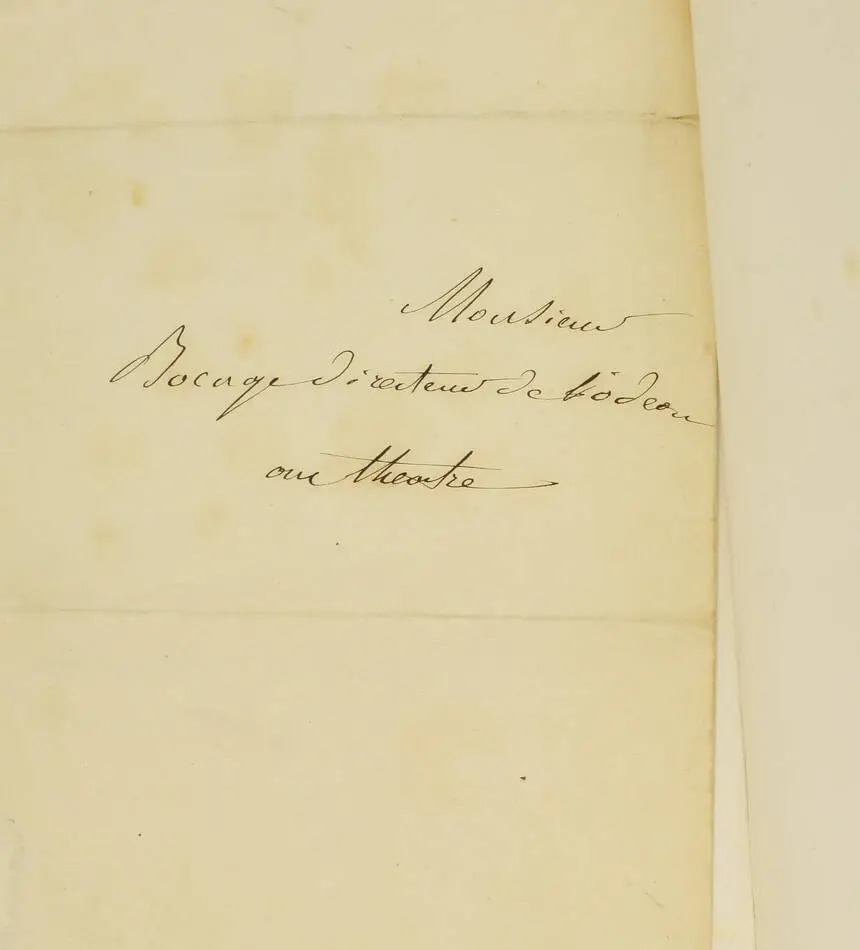 Monsieur
Bocage directeur de l'odeon
au theatre